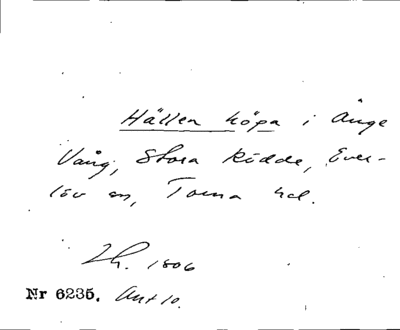 Hällen köpa i Ånge
Vång, Stora Rödde, Ever-
löv sn, Torna hd.
Lh. 1806
Nr 6235. Ant 10.